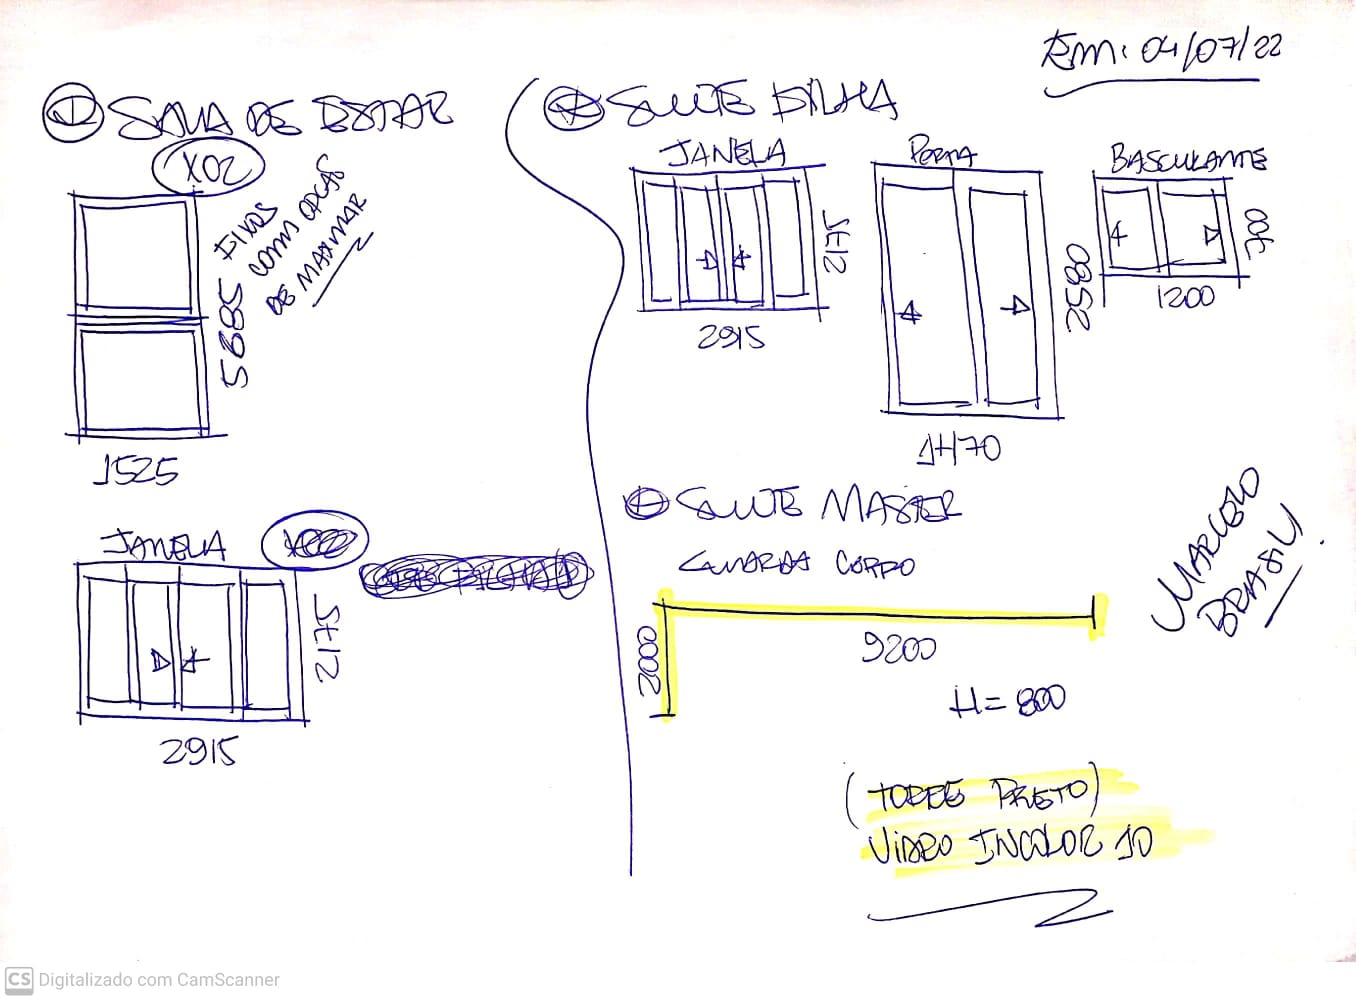 Em: 04/07/22
① SALA DE ESTAR
X02
FIXOS
COM OPÇAS
DE MAXIMAR
5885
1525
JANELA
1275
2915
SUITE FILHA
JANELA
1275
2915
PORTA
2580
1470
BASCULANTE
700
1200
SUITE MASTER
GUARDA CORPO
2000
9200
H = 800
MARCELO
BRASIL
(TORRE PRETO)
VIDRO INCOLOR 10
CS Digitalizado com CamScanner